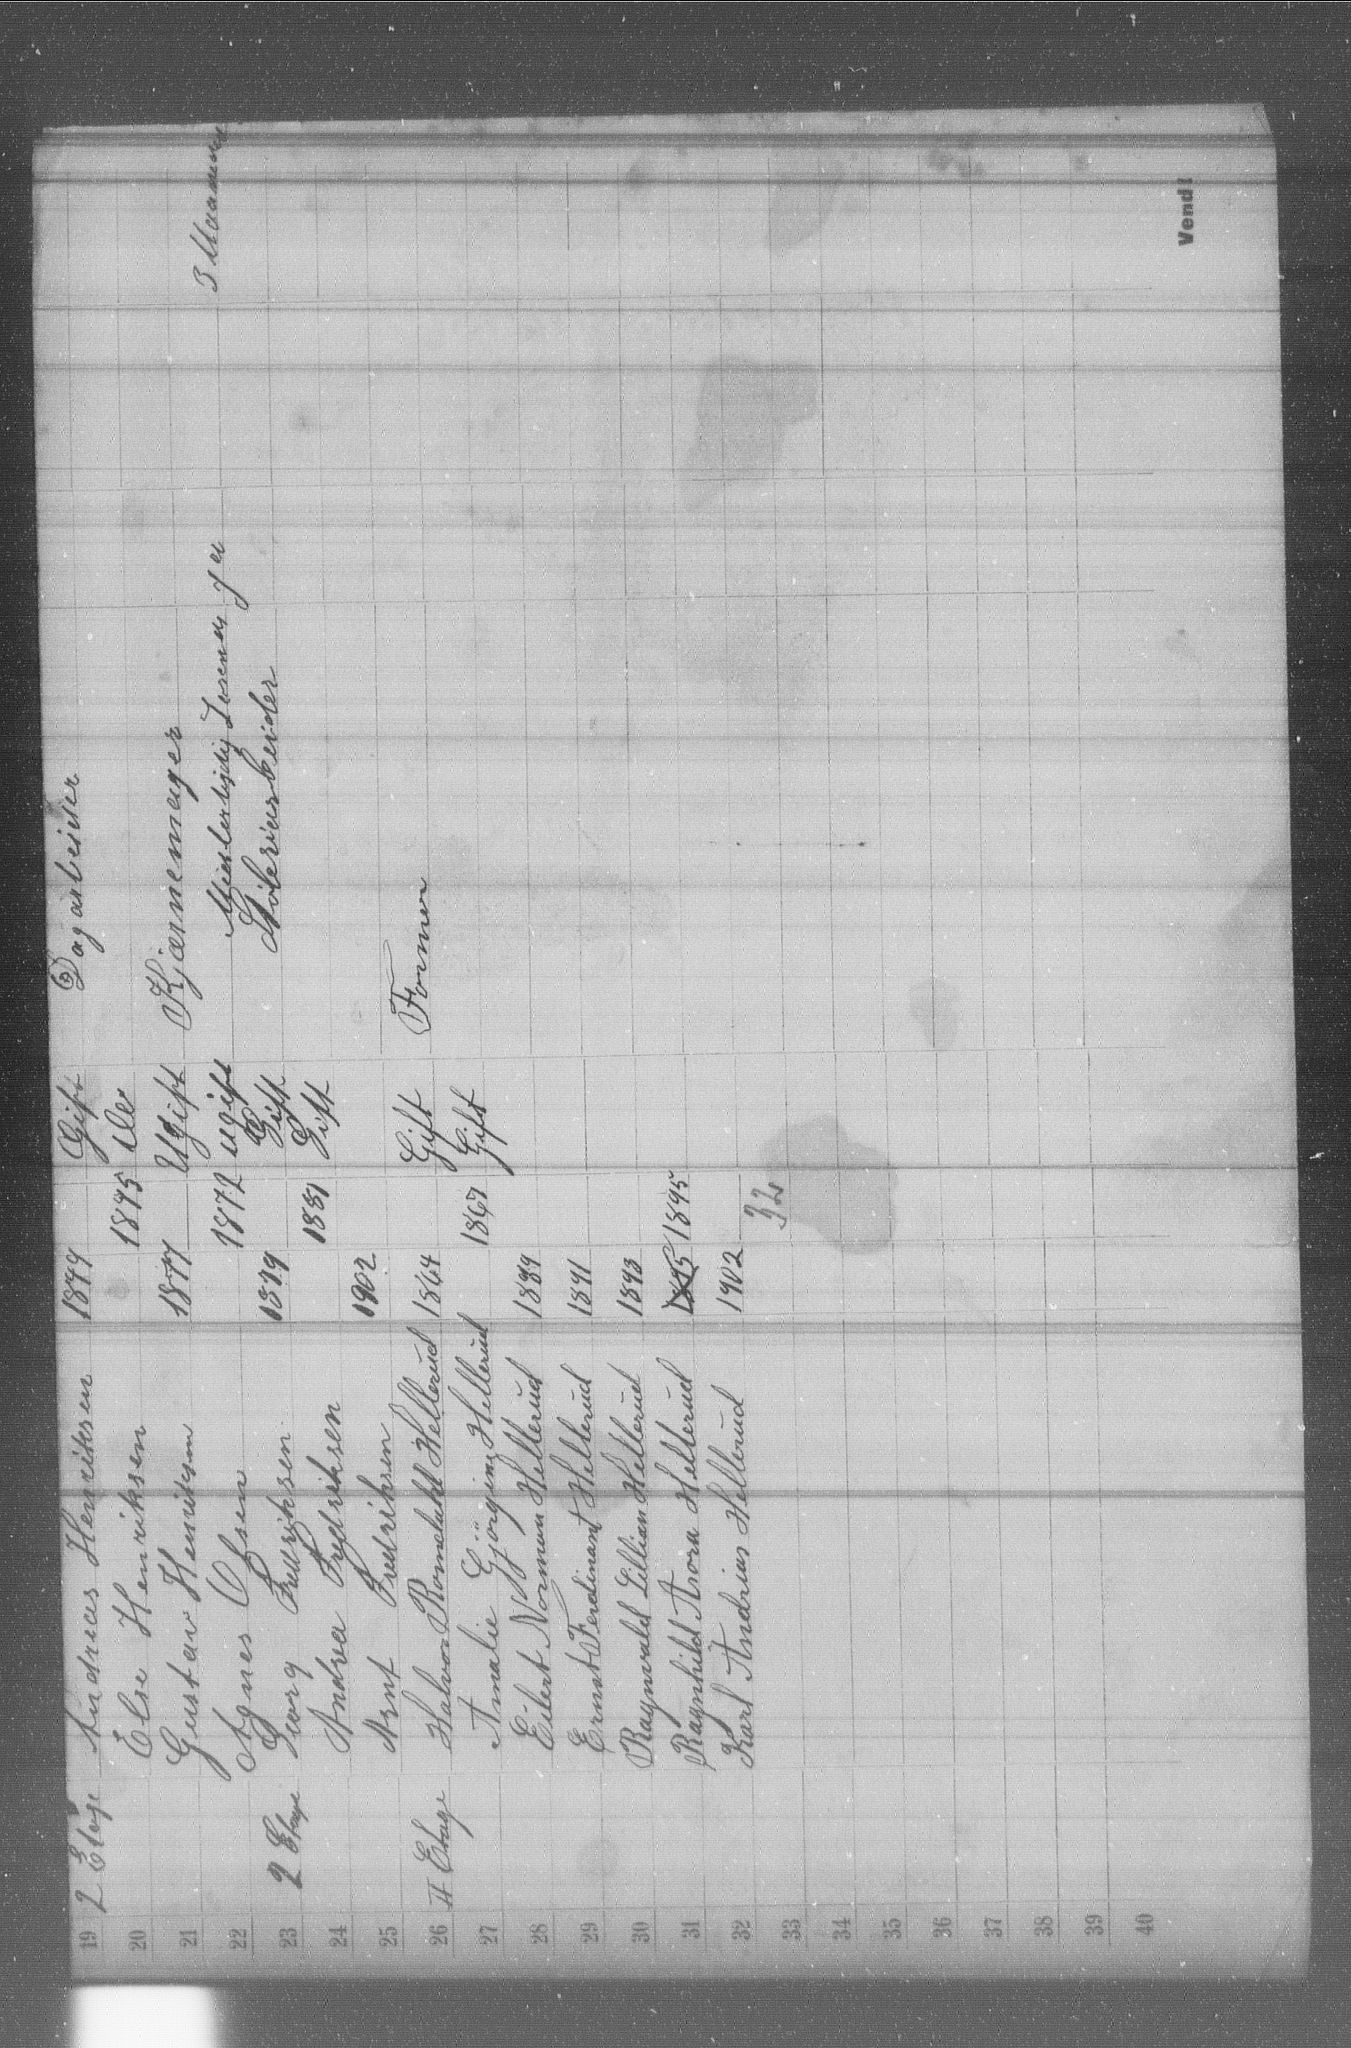 19 2 Etage Andreas Henriksen 1849 Gift Dagarbeider
20 Else Henriksen 1845 Do
21 Gustav Henriksen 1877 Ugift Kjørnemager
22 Agnes Olsen 1872 ugift 3 Maaneder
23 2 Etage Georg Fredriksen 1879 Gift Støberiarbeider
24 Andrea Fredriksen 1881 Gift
25 Arnt Fredriksen 1902
26 II Etage Halvor Romdahl Hellerud 1864 Gift Former
27 Amalie Gjörgine Hellerud 1867 Gift
28 Eilert Norman Hellerud 1889
29 Ernst Ferdinant Hellerud 1891
30 Ragnvald Lillian Hellerud 1893
31 Ragnhild Asora Hellerud 1895 1895
32 Karl Andrias Hellerud 1902
33 32
34
35
36
37
38
39
40
Vend!